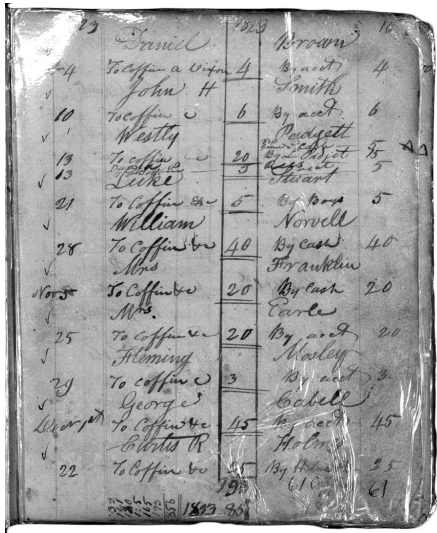 23 1823 16
Daniel Brown
4 To Coffin a 4 By acct 4
John H Smith
10 To coffin 6 By acct 6
Westly Padgett
13 To coffin 20 By
13 5 5
Luke Stuart
21 To Coffin &c 5 By Boys 5
William Norvell
28 To Coffin &c 40 By Cash 40
Mrs Franklin
Nov 5 To Coffin &c 20 By Cash 20
Mrs. Earle
25 To Coffin &c 20 By acct 20
Fleming Mosley
29 To coffin 3 By acct 3
George Cabell
To Coffin &c 45 By acct 45
Curtis R Holms
22 To Coffin &c 25 By 25
193 61
1823